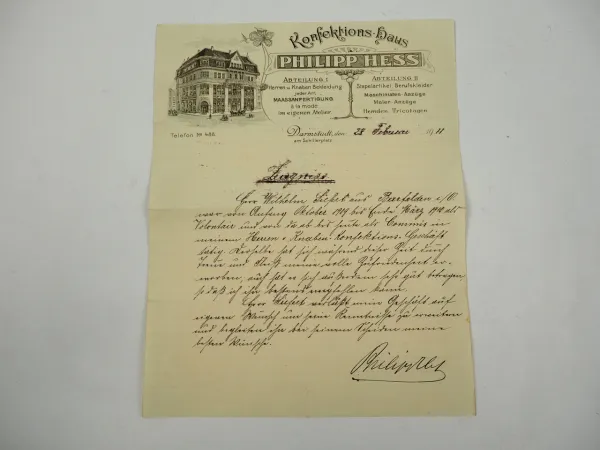 Konfektions-Haus
PHILIPP HESS
ABTEILUNG I
Herren u. Knaben Bekleidung
jeder Art.
MAASSANFERTIGUNG
à la mode
im eigenen Atelier.
ABTEILUNG II
Stapelartikel Berufskleider
Maschinisten Anzüge
Maler Anzüge
Hemden, Tricotagen
Telefon № 486.
Darmstadt, den 28 Februar 1911
am Schillerplatz
Zeugnis
Herr Wilhelm aus i/O
war von Anfang Oktober bis Ende März als
Volontair und von da ab bis heute als Commis in
meinem Herren & Knaben-Konfektions-Geschäft
tätig. Derselbe hat sich während dieser Zeit durch
Treue und Fleiß meine volle Zufriedenheit er-
worben, auch hat er sich außerdem sehr gut betragen
so daß ich ihn bestens empfehlen kann.
Herr verläßt mein Geschäft auf
eigenen Wunsch um seine Kenntnisse zu erweitern
und begleiten ihn bei seinem Scheiden meine
besten Wünsche.
Philipp Hess